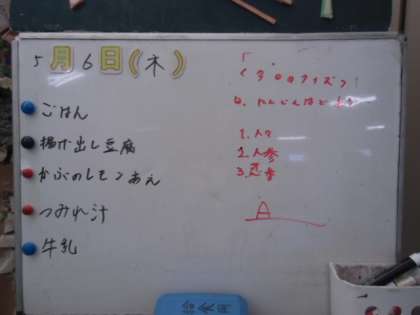 5月6日(木)
ごはん
揚げ出し豆腐
かぶのレモンあえ
つみれ汁
牛乳
<今日のクイズ>
Q. にんじんはどれ
1. 人々
2. 人参
3.
A